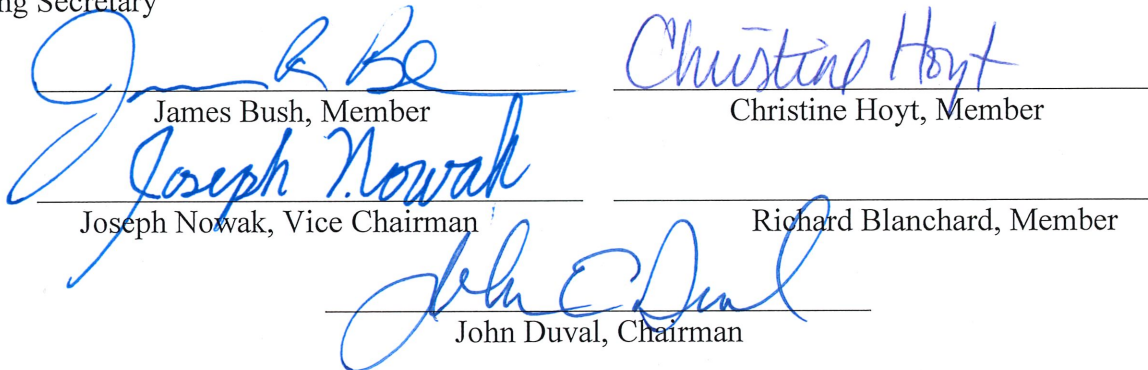 ng Secretary
Christine Hoyt
James Bush, Member Christine Hoyt, Member
Joseph Nowak
Joseph Nowak, Vice Chairman Richard Blanchard, Member
John C Duval
John Duval, Chairman